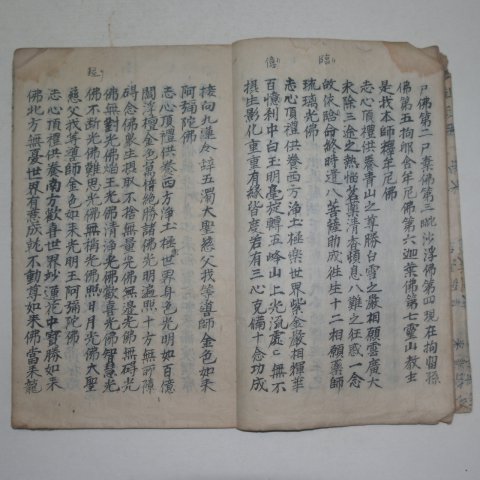 臨 僧
尸佛第二尸棄佛第三毗沙浮佛第四現在拘留孫
佛第五拘那含牟尼佛第六迦葉佛第七靈山教主
是我本師釋牟尼佛
志心頂禮供養青山之尊勝白雪之嚴相願雲廣大
未除三途之熱惱茗藥清奇頓息八難之狂惑一念
故依命終時遣八菩薩助成往生十二相願藥師
琉璃光佛
志心頂禮供養西方淨土極樂世界紫金嚴相輝華
百億刹中白玉明毫旋轉五峯山上光流處〻無不
攝生影化重重有緣皆度若有三心克備十念功成
接向九蓮令辭五濁大聖慈父我等導師金色如來
阿彌陀佛
志心頂禮供養西方淨土極世界身色光明如百億
閻浮檀金色萬倍絶勝諸佛光明遍照十方無所障
碍念佛衆生攝取不捨無量光佛無邊光佛無碍光
佛無對光佛焰王光佛清淨光佛歡喜光佛智慧光
佛不斷光佛難思光佛無稱光佛照日月光佛大聖
慈父我等導師金色如來光明王阿彌陀佛
志心頂禮供養南方歡喜世界妙蓮花中寶勝如來
佛北方無憂世界有無成就不動尊如來佛當來龍